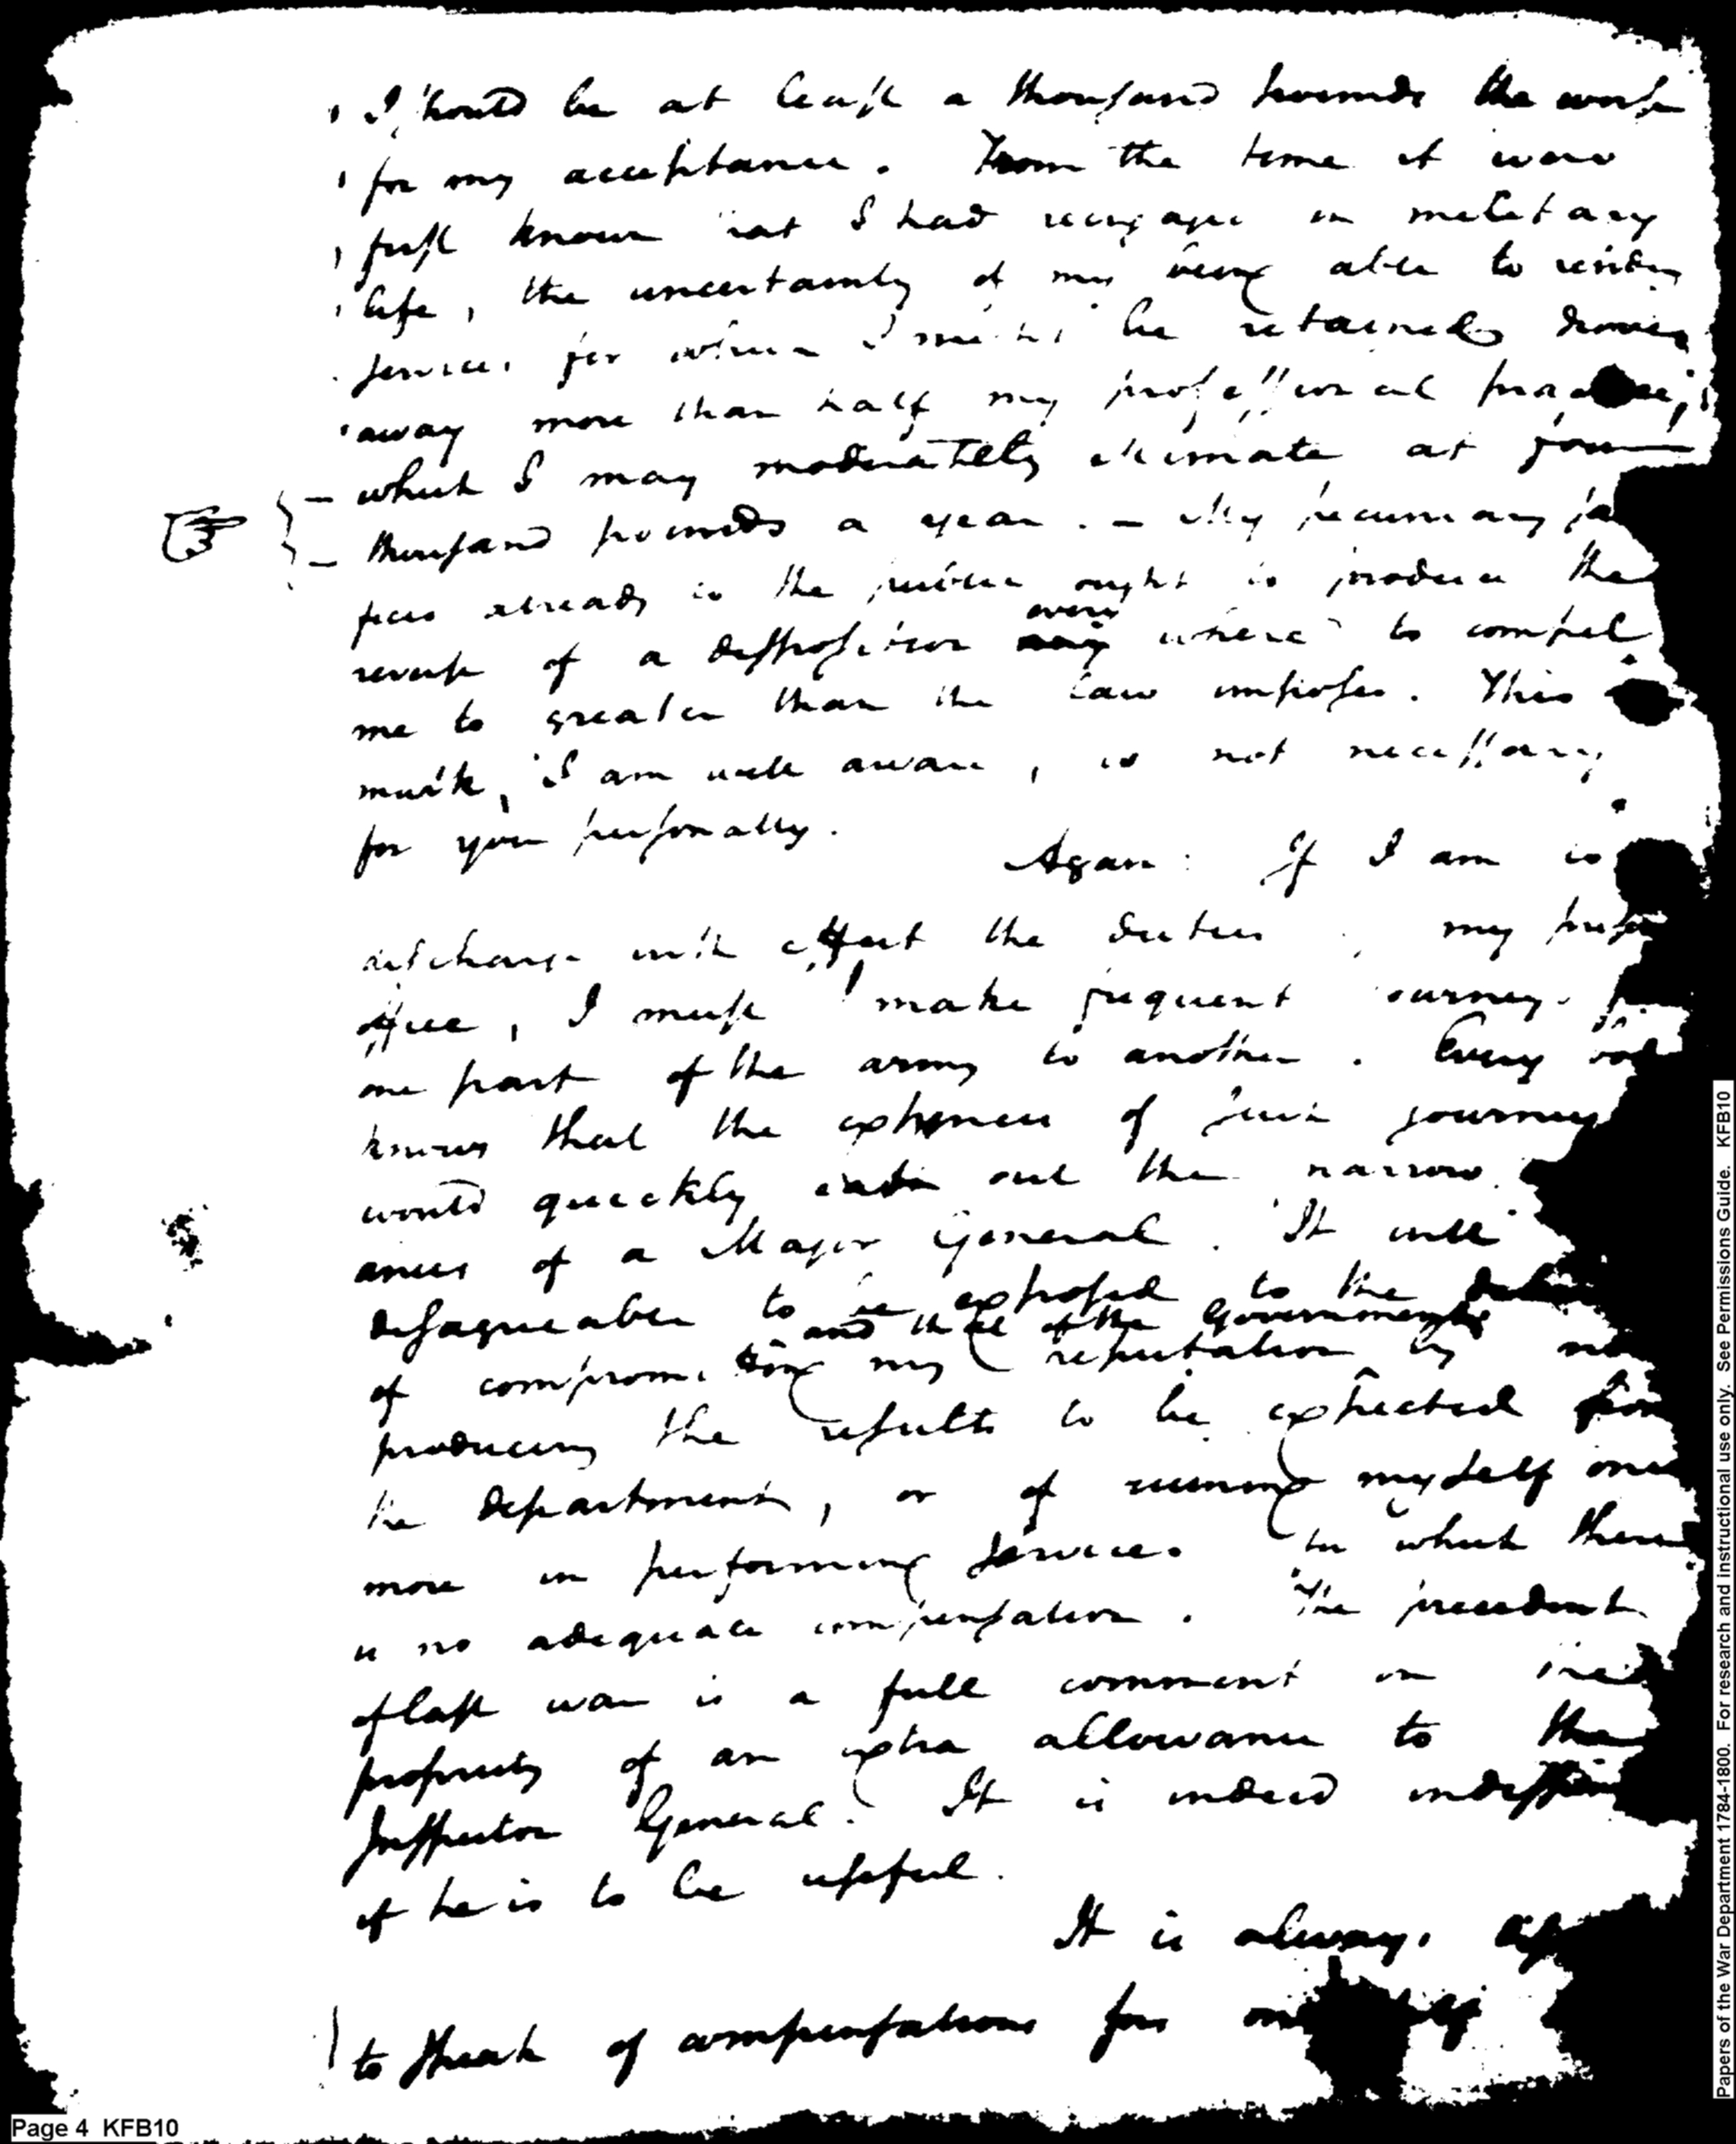 I should be at least a thousand pounds the worse
for my acceptance. From the time it was
first known that I had reengaged in military
life, the uncertainty of my being able to render
services for which I might be retained drove
away more than half my professional practice,
which I may moderately estimate at four
thousand pounds a year. – My pecuniary
fices already to the public ought to produce the
reverse of a disposition every where to compel
me to greater than the law imposes. This
mark, I am well aware, is not necessary
for you personally.
Again: If I am to
discharge with effect the duties of my present
office, I must make frequent journeys
one part of the army to another. Every
knows that the expences of such journeys
would quickly eat out the narrow
ances of a Major General. It will
disagreeable to be exposed to the
and that of the Government
of compromitting my reputation by not
producing the results to be expected from
the department, or of ruining myself once
more in performing services for which there
is no adequate compensation. The precedent
of last war is a full comment on
propriety of an extra allowance to the
Inspector General. It is indeed
if he is to be useful.
It is always
to speak of compensations for
Page 4 KFB10
Papers of the War Department 1784-1800. For research and instructional use only. See Permissions Guide. KFB10